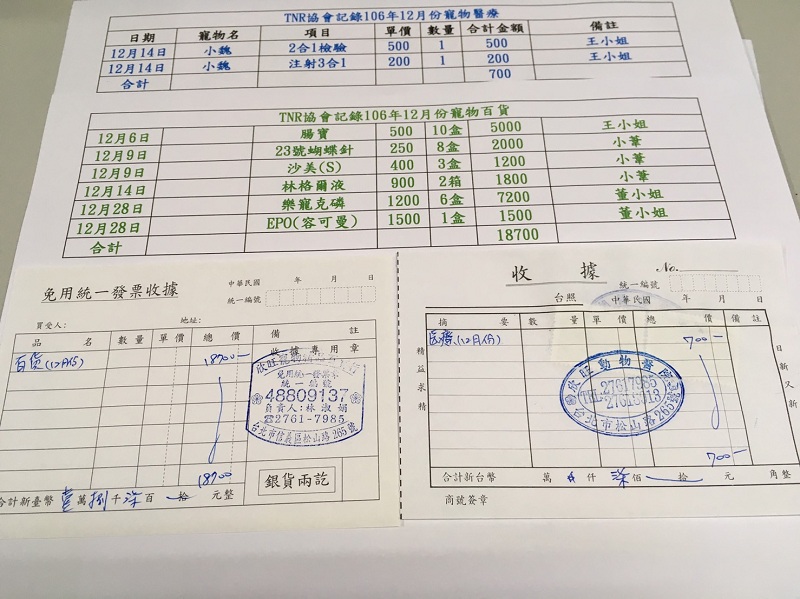 TNR協會記錄106年12月份寵物醫療
日期 寵物名 項目 單價 數量 合計金額 備註
12月14日 小魏 2合1檢驗 500 1 500 王小姐
12月14日 小魏 注射3合1 200 1 200 王小姐
合計 700
TNR協會記錄106年12月份寵物百貨
12月6日 腸寶 500 10盒 5000 王小姐
12月9日 23號蝴蝶針 250 8盒 2000 小葦
12月9日 沙美(S) 400 3盒 1200 小葦
12月14日 林格爾液 900 2箱 1800 小葦
12月28日 樂寵克磷 1200 6盒 7200 董小姐
12月28日 EPO(容可曼) 1500 1盒 1500 董小姐
合計 18700
免用統一發票收據
中華民國 年 月 日
統一編號
買受人: 地址:
品名 數量 單價 總價 備註
百貨(12月份) 18700-
收據專用章
欣旺寵物
免用統一發票
統一編號
48809137
負責人:林淑娟
☎2761-7985
台北市信義區松山路265號
18700
銀貨兩訖
合計新臺幣 壹萬捌千柒百一拾 元整
收據 No.
統一編號
台照 中華民國 年 月 日
摘要 數量 單價 總價 備註
医療(12月份) 700-
精益求精
日新又新
欣旺動物醫院
TEL:27617985
台北市松山路265號
700-
合計新台幣 萬 仟 柒佰 一 拾 元 角整
商號簽章